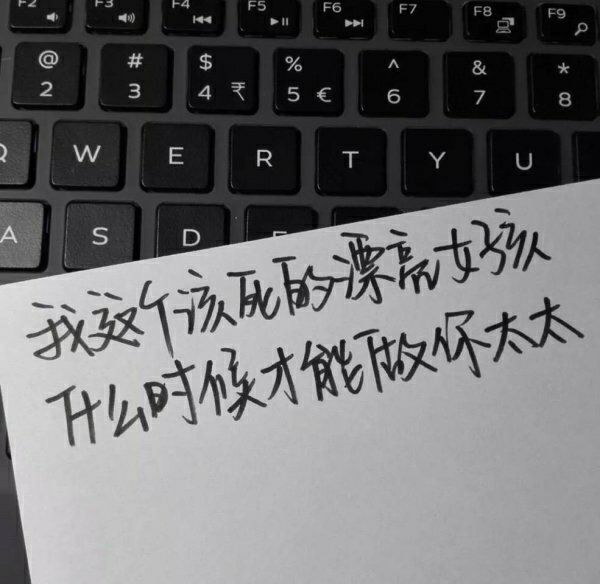 F2 F3 F4 F5 F6 F7 F8 F9
@ # $ % ^ & *
2 3 4 ₹ 5 € 6 7 8
Q W E R T Y U
A S D
我这个该死的漂亮女孩
什么时候才能做你太太